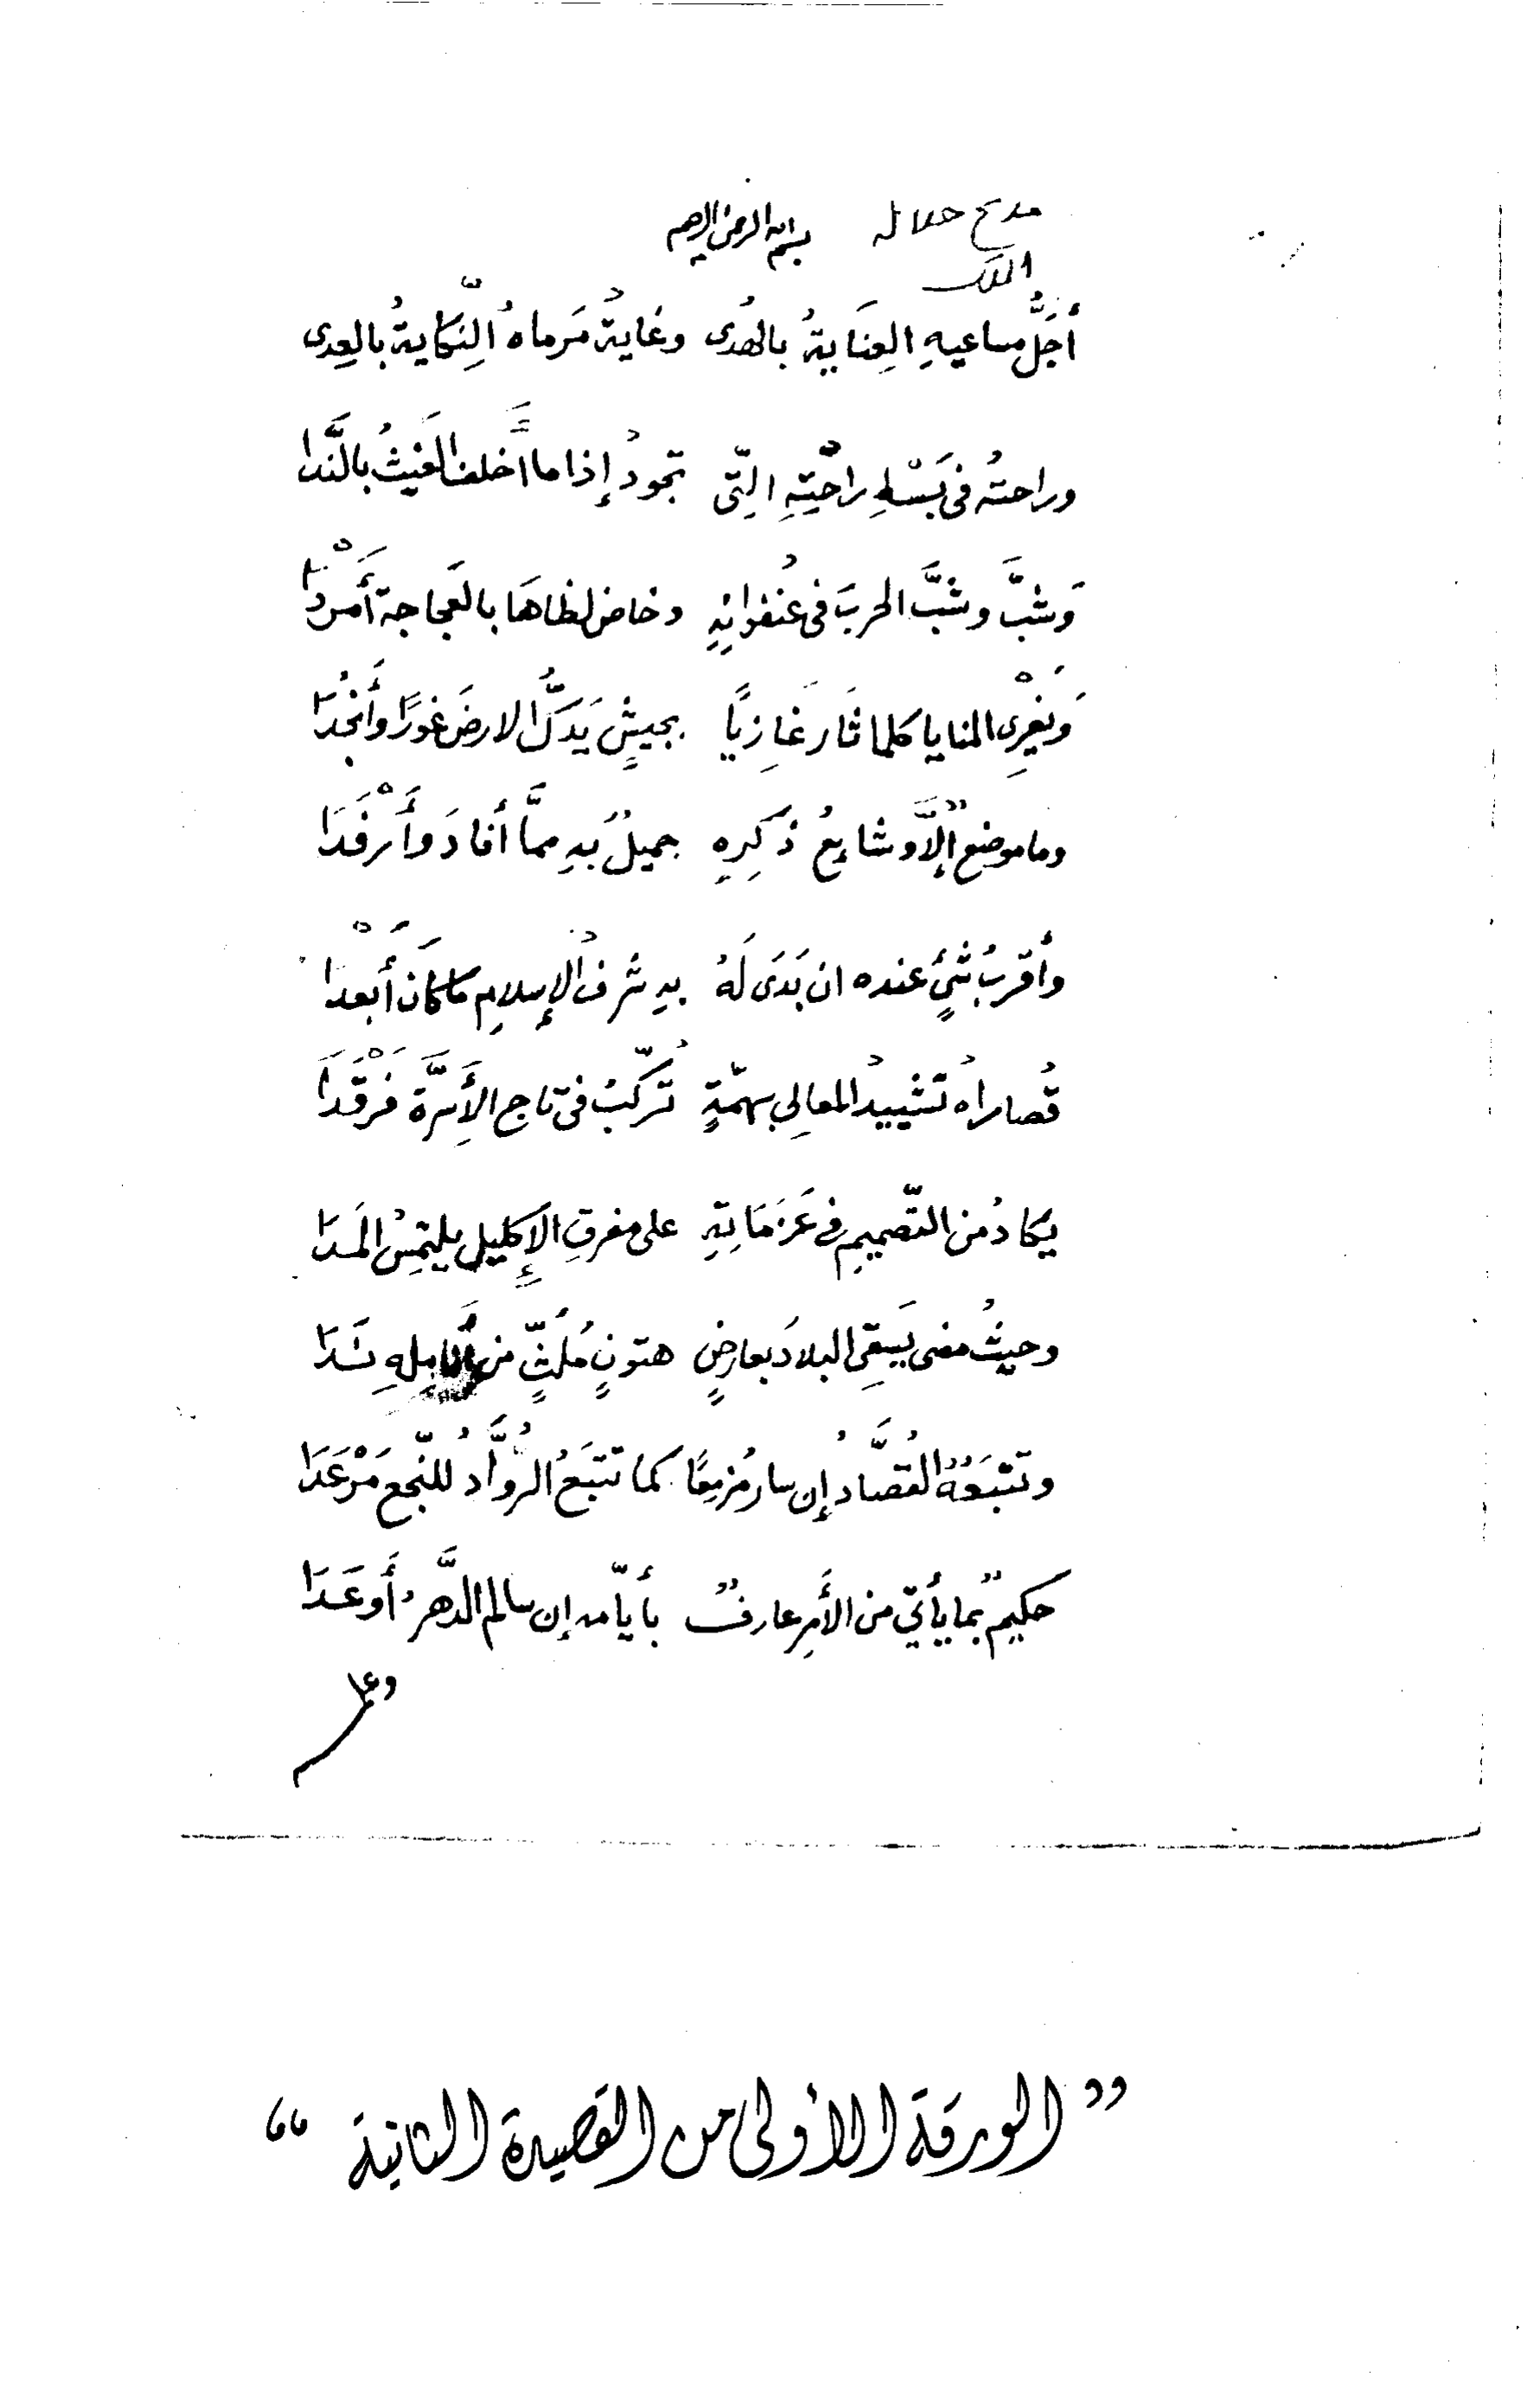 مديح جلالة بسم الله الرحمن الرحيم
الملك
أَجَلُّ مساعيهِ العِنَايةُ بالهُدى وغايةُ مَرماهُ النِّكايةُ بالعِدى
وراحتُه فى بَسْطِ راحَتِهِ الَّتى تجودُ إذا ما أَخلفَ الغَيثُ بالنَّدا
وَشبَّ وشبَّ الحربَ فى عُنفوانِهِ وخاض لظاهَا بالعَجاجة أَمْرَدَا
وَيُغْرِى المنايا كلما ثَارَ غَازِيًا بجيشٍ يَدُكُّ الارضَ غورًا وأَنجُدَا
وما موضعٌ إلَّا وشايعُ ذكرِهِ جميلٌ بهِ ممَّا أفادَ وَأَرْفَدَا
وأقربُ شَيْءٍ عنده ان بَدَى لَهُ بهِ شرفُ الإسلامِ ما كَانَ أَبْعَدَا
قُصاراهُ تشييدُ المعالِي بهمّةٍ تُركِّبُ فى تاجِ الأَسِرَّة فَرْقَدَا
يكادُ من التّصميمِ فى عَزَمَاتِهِ على مفرقِ الإِكليلِ يلتمِسُ المَدَا
وحيثُ مضى يَسقِى البلادَ بعارضٍ هتونٍ مُلثٍّ من أَنامِلِهِ نَدَا
وتتْبَعُهُ القُصَّادُ إن سار مُزمِعًا كما تتبَعُ الرُّوَّادُ للنّجعِ مَرْعَدَا
حكيمٌ بما يأتي من الأَمرِ عارفٌ بأيّامه إن سالم الدَّهرُ أَو عَدَا
" الورقة الأولى من القصيدة الثانية "